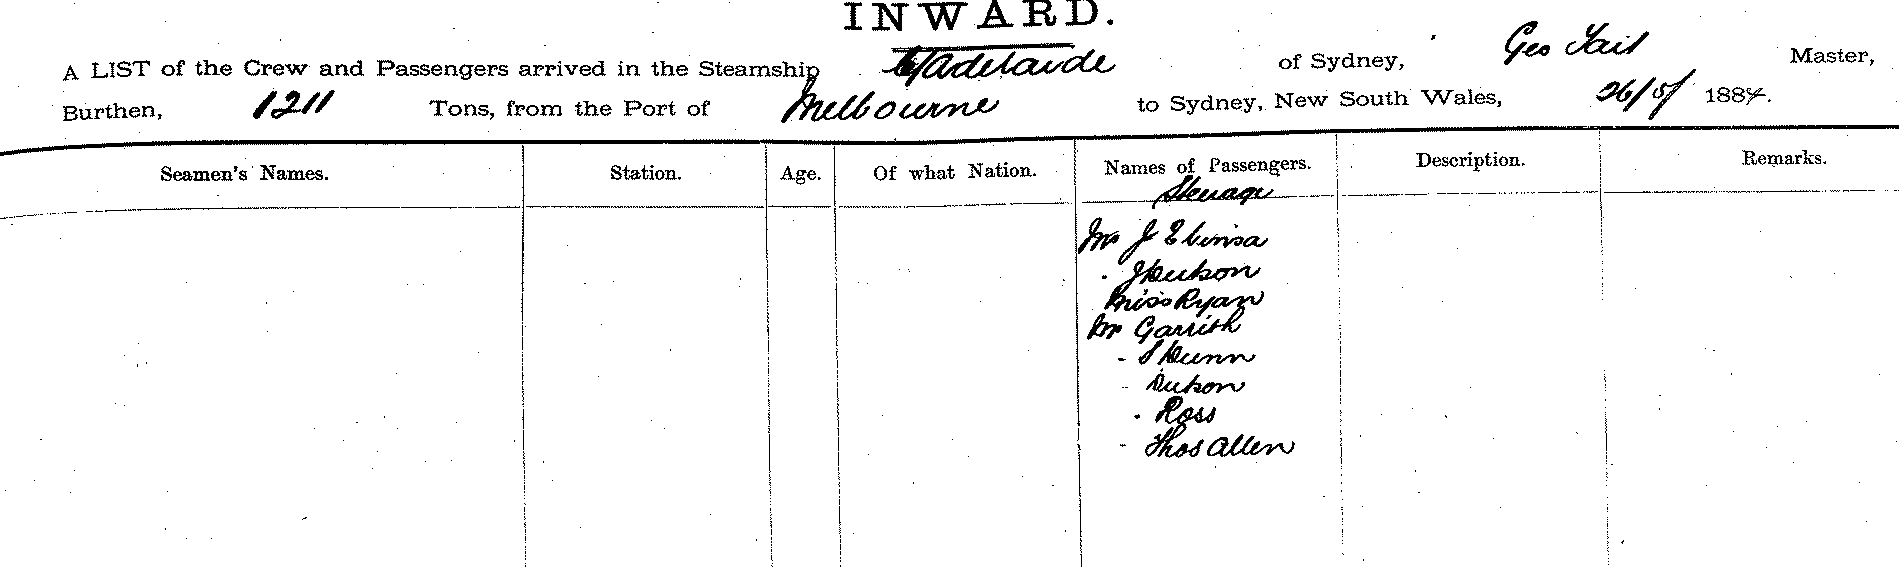 INWARD.
A LIST of the Crew and Passengers arrived in the Steamship C/Adelaide of Sydney, Geo Tait Master,
Burthen, 1211 Tons, from the Port of Melbourne to Sydney, New South Wales, 26/5/ 1884.
Seamen's Names. Station. Age. Of what Nation. Names of Passengers. Description. Remarks.
Steerage
Mr J
Miss Ryan
Mr
- Dunn
- 
- Ross
- Thos Allen